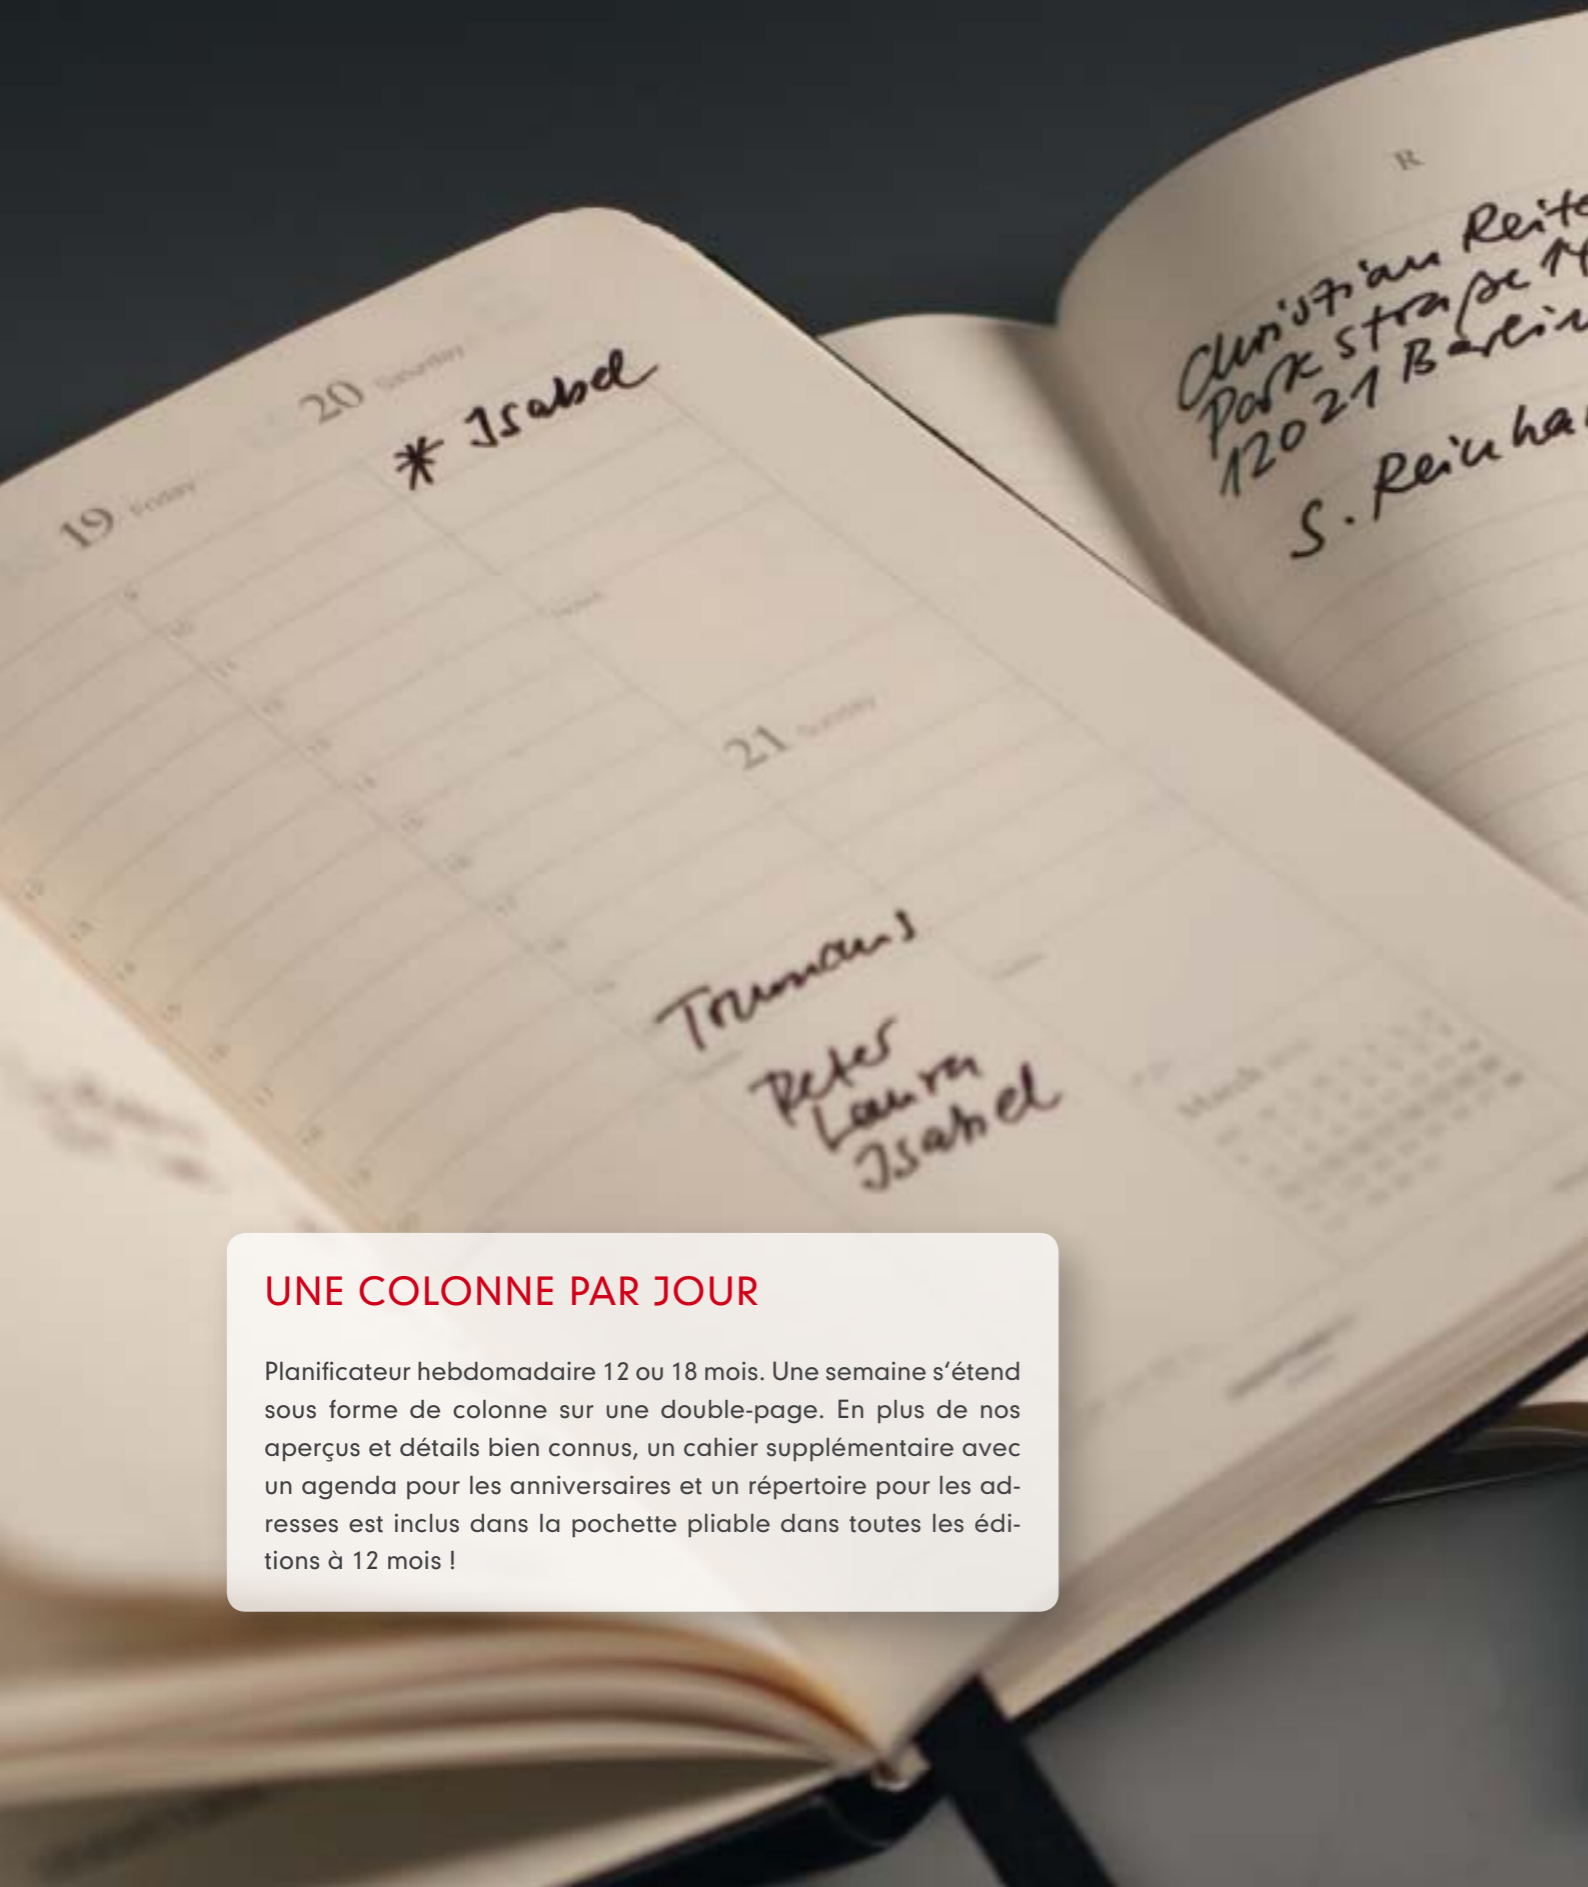 R
Christian Reite
Parkstraße 14
12021 Berlin
S. Reinha
20 Saturday
* Isabel
19 Friday
9
10
11
12
13
14
15
16
17
18
19
Notes
21 Sunday
Notes
Peter
Laura
Isabel
March
UNE COLONNE PAR JOUR
Planificateur hebdomadaire 12 ou 18 mois. Une semaine s‘étend
sous forme de colonne sur une double-page. En plus de nos
aperçus et détails bien connus, un cahier supplémentaire avec
un agenda pour les anniversaires et un répertoire pour les ad-
resses est inclus dans la pochette pliable dans toutes les édi-
tions à 12 mois !